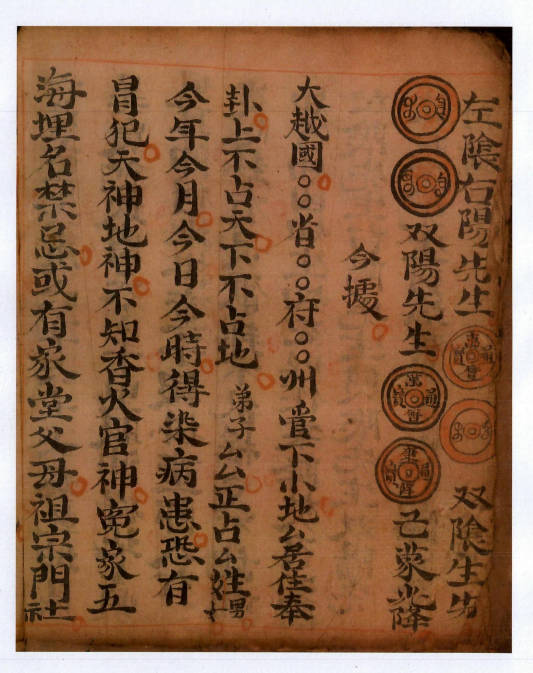 左陰右陽先生 双陰生先
双陽先生 已蒙光降
今據
大越國○○省○○府○○州管下小地厶居住奉
卦上不占天下不占地 弟子厶厶正占厶姓男
今年今月今日今時得染病患恐有
冐犯天神地神不知香火官神冤家五
海埋名禁忌或有家堂父母祖宗門社